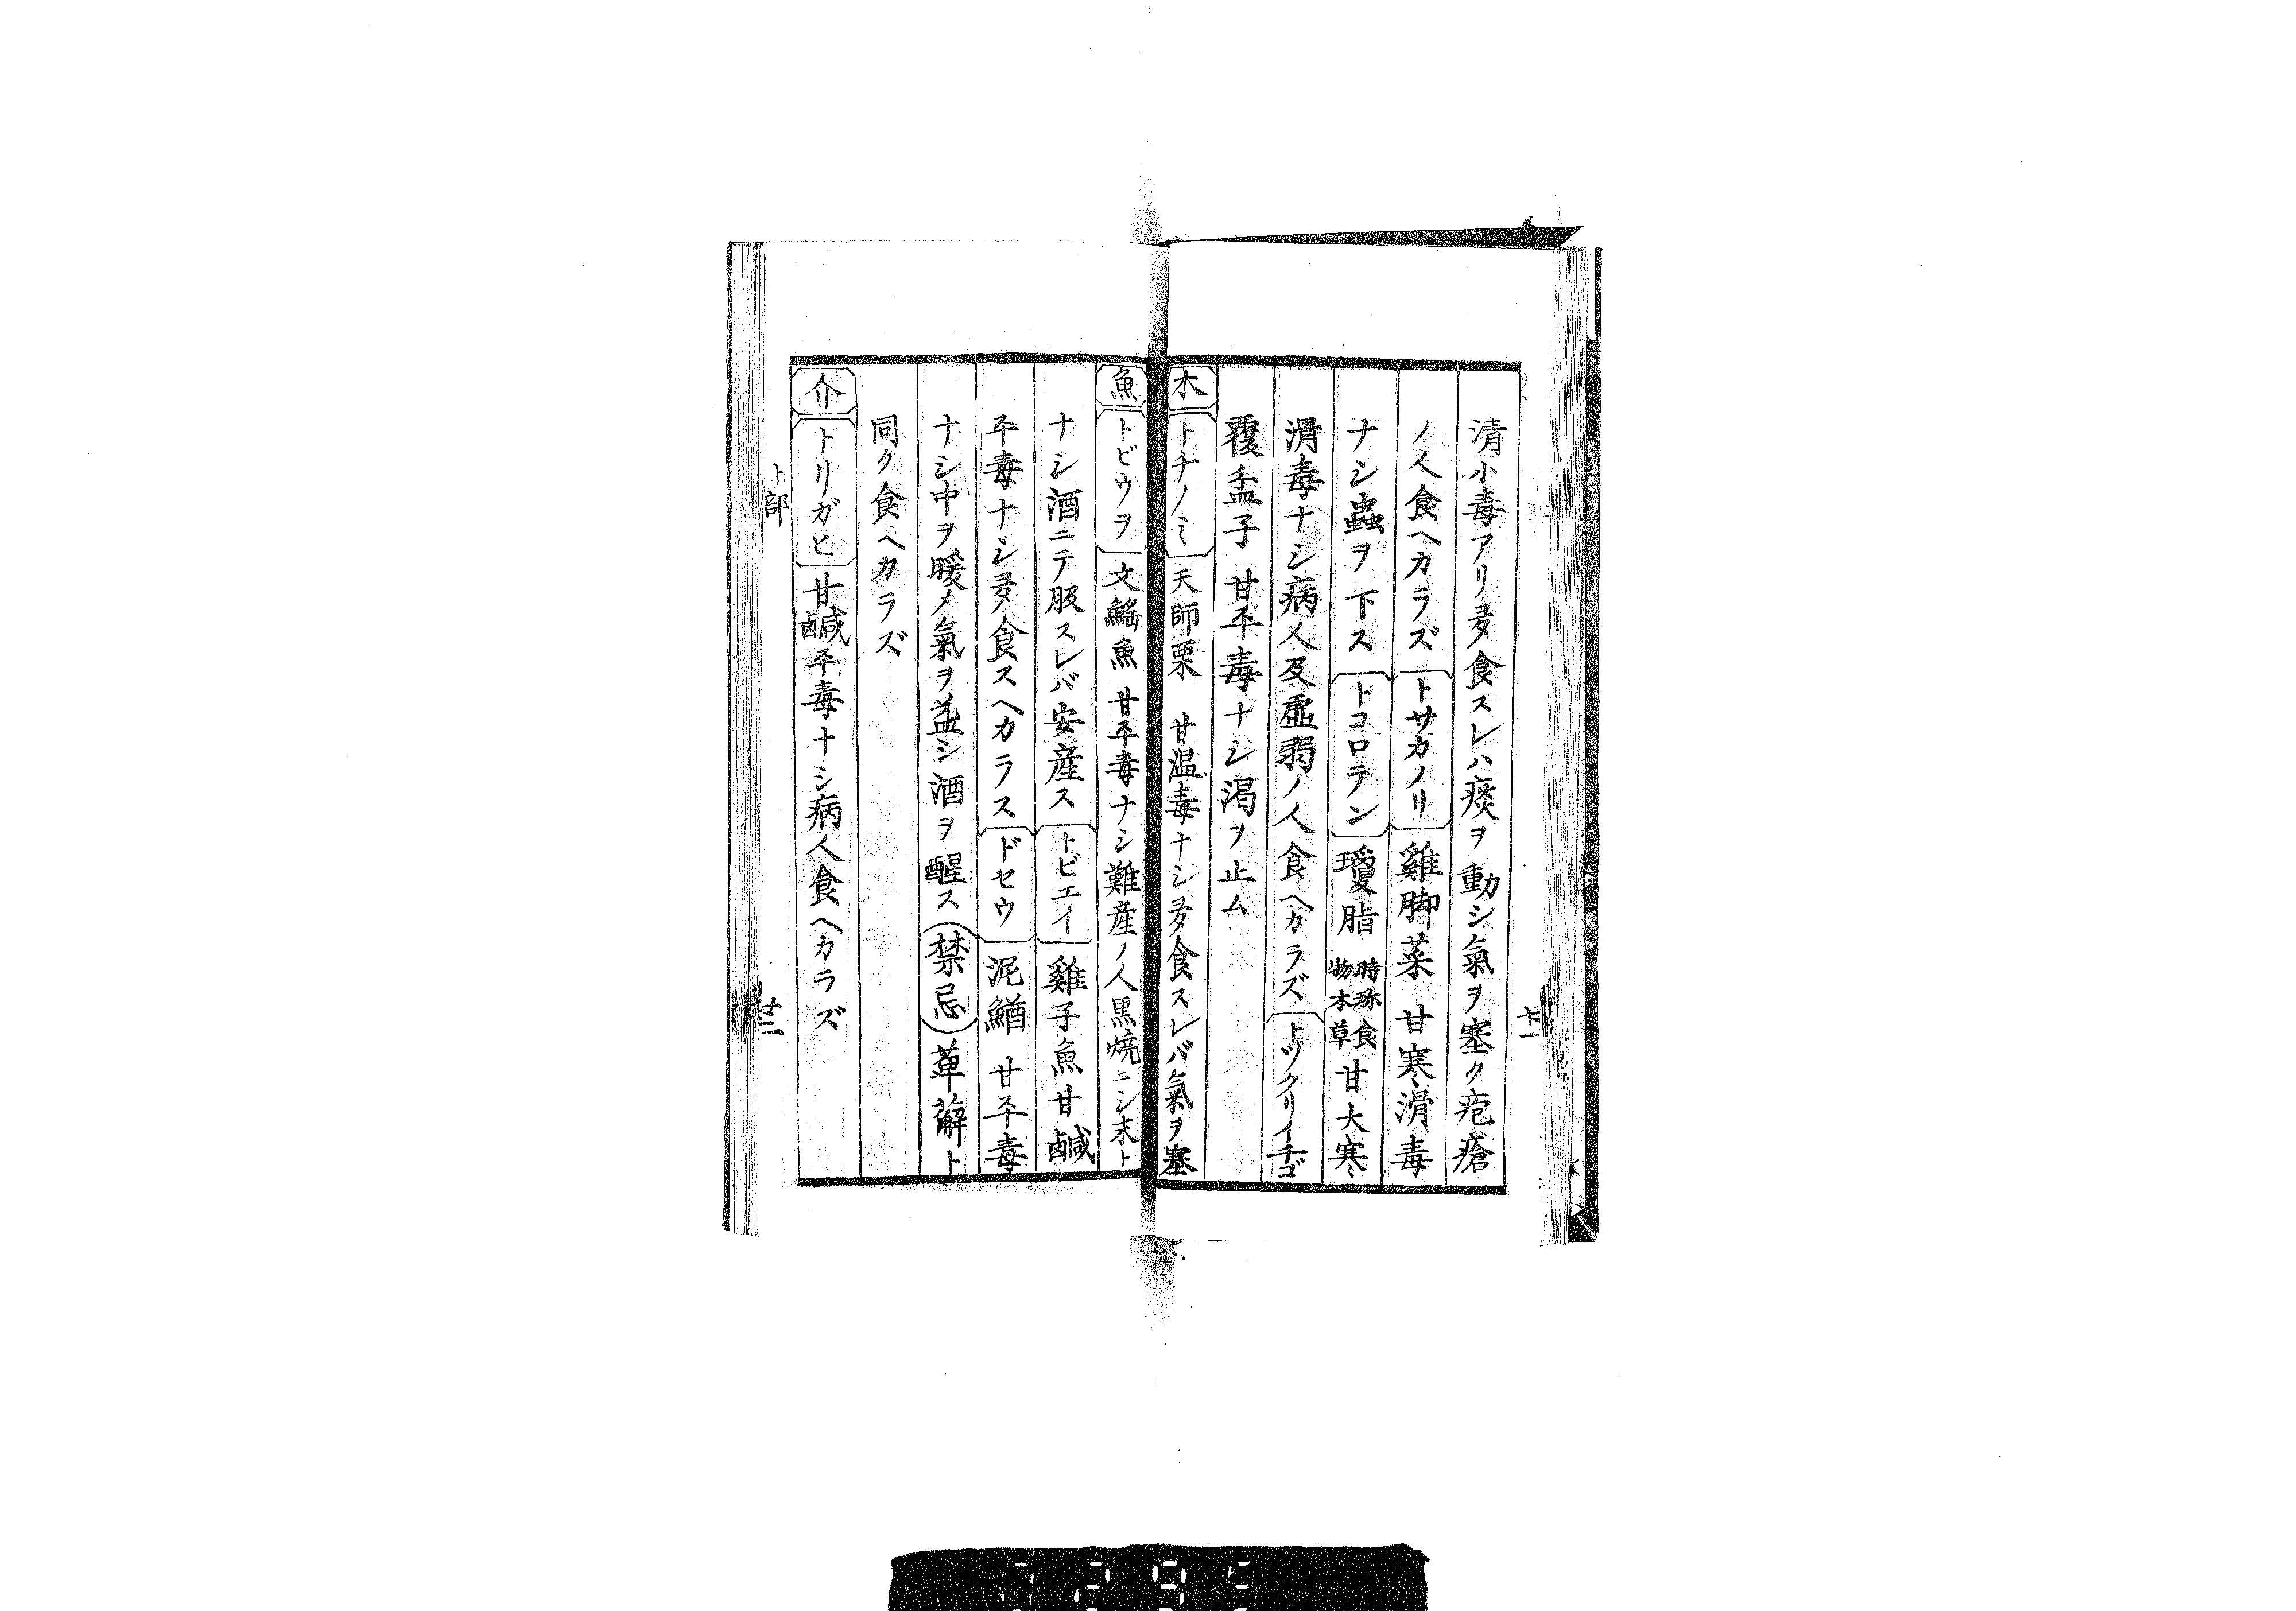 清小毒アリ多ク食スレハ痰ヲ動シ氣ヲ塞ク疱瘡
ノ人食ヘカラズ トサカノリ 雞脚菜 甘寒滑毒
ナシ蟲ヲ下ス トコロテン 瓊脂 時珍食物本草 甘大寒
滑毒ナシ病人及虚弱ノ人食ヘカラズ トツクリイチゴ
覆盆子 甘平毒ナシ渇ヲ止ム
木 トチノミ 天師栗 甘温毒ナシ多ク食スレバ氣ヲ塞
魚 トビウヲ 文鰩魚 甘平毒ナシ難産ノ人黒焼ニシ末ト
ナシ酒ニテ服スレバ安産ス トビエイ 雞子魚 甘鹹
平毒ナシ多ク食スヘカラス ドセウ 泥鰌 甘平毒
ナシ中ヲ暖メ氣ヲ益シ酒ヲ醒ス 禁忌 萆薢ト
同ク食ヘカラズ
介 トリガヒ 甘鹹平毒ナシ病人食ヘカラズ
ト部
廿二